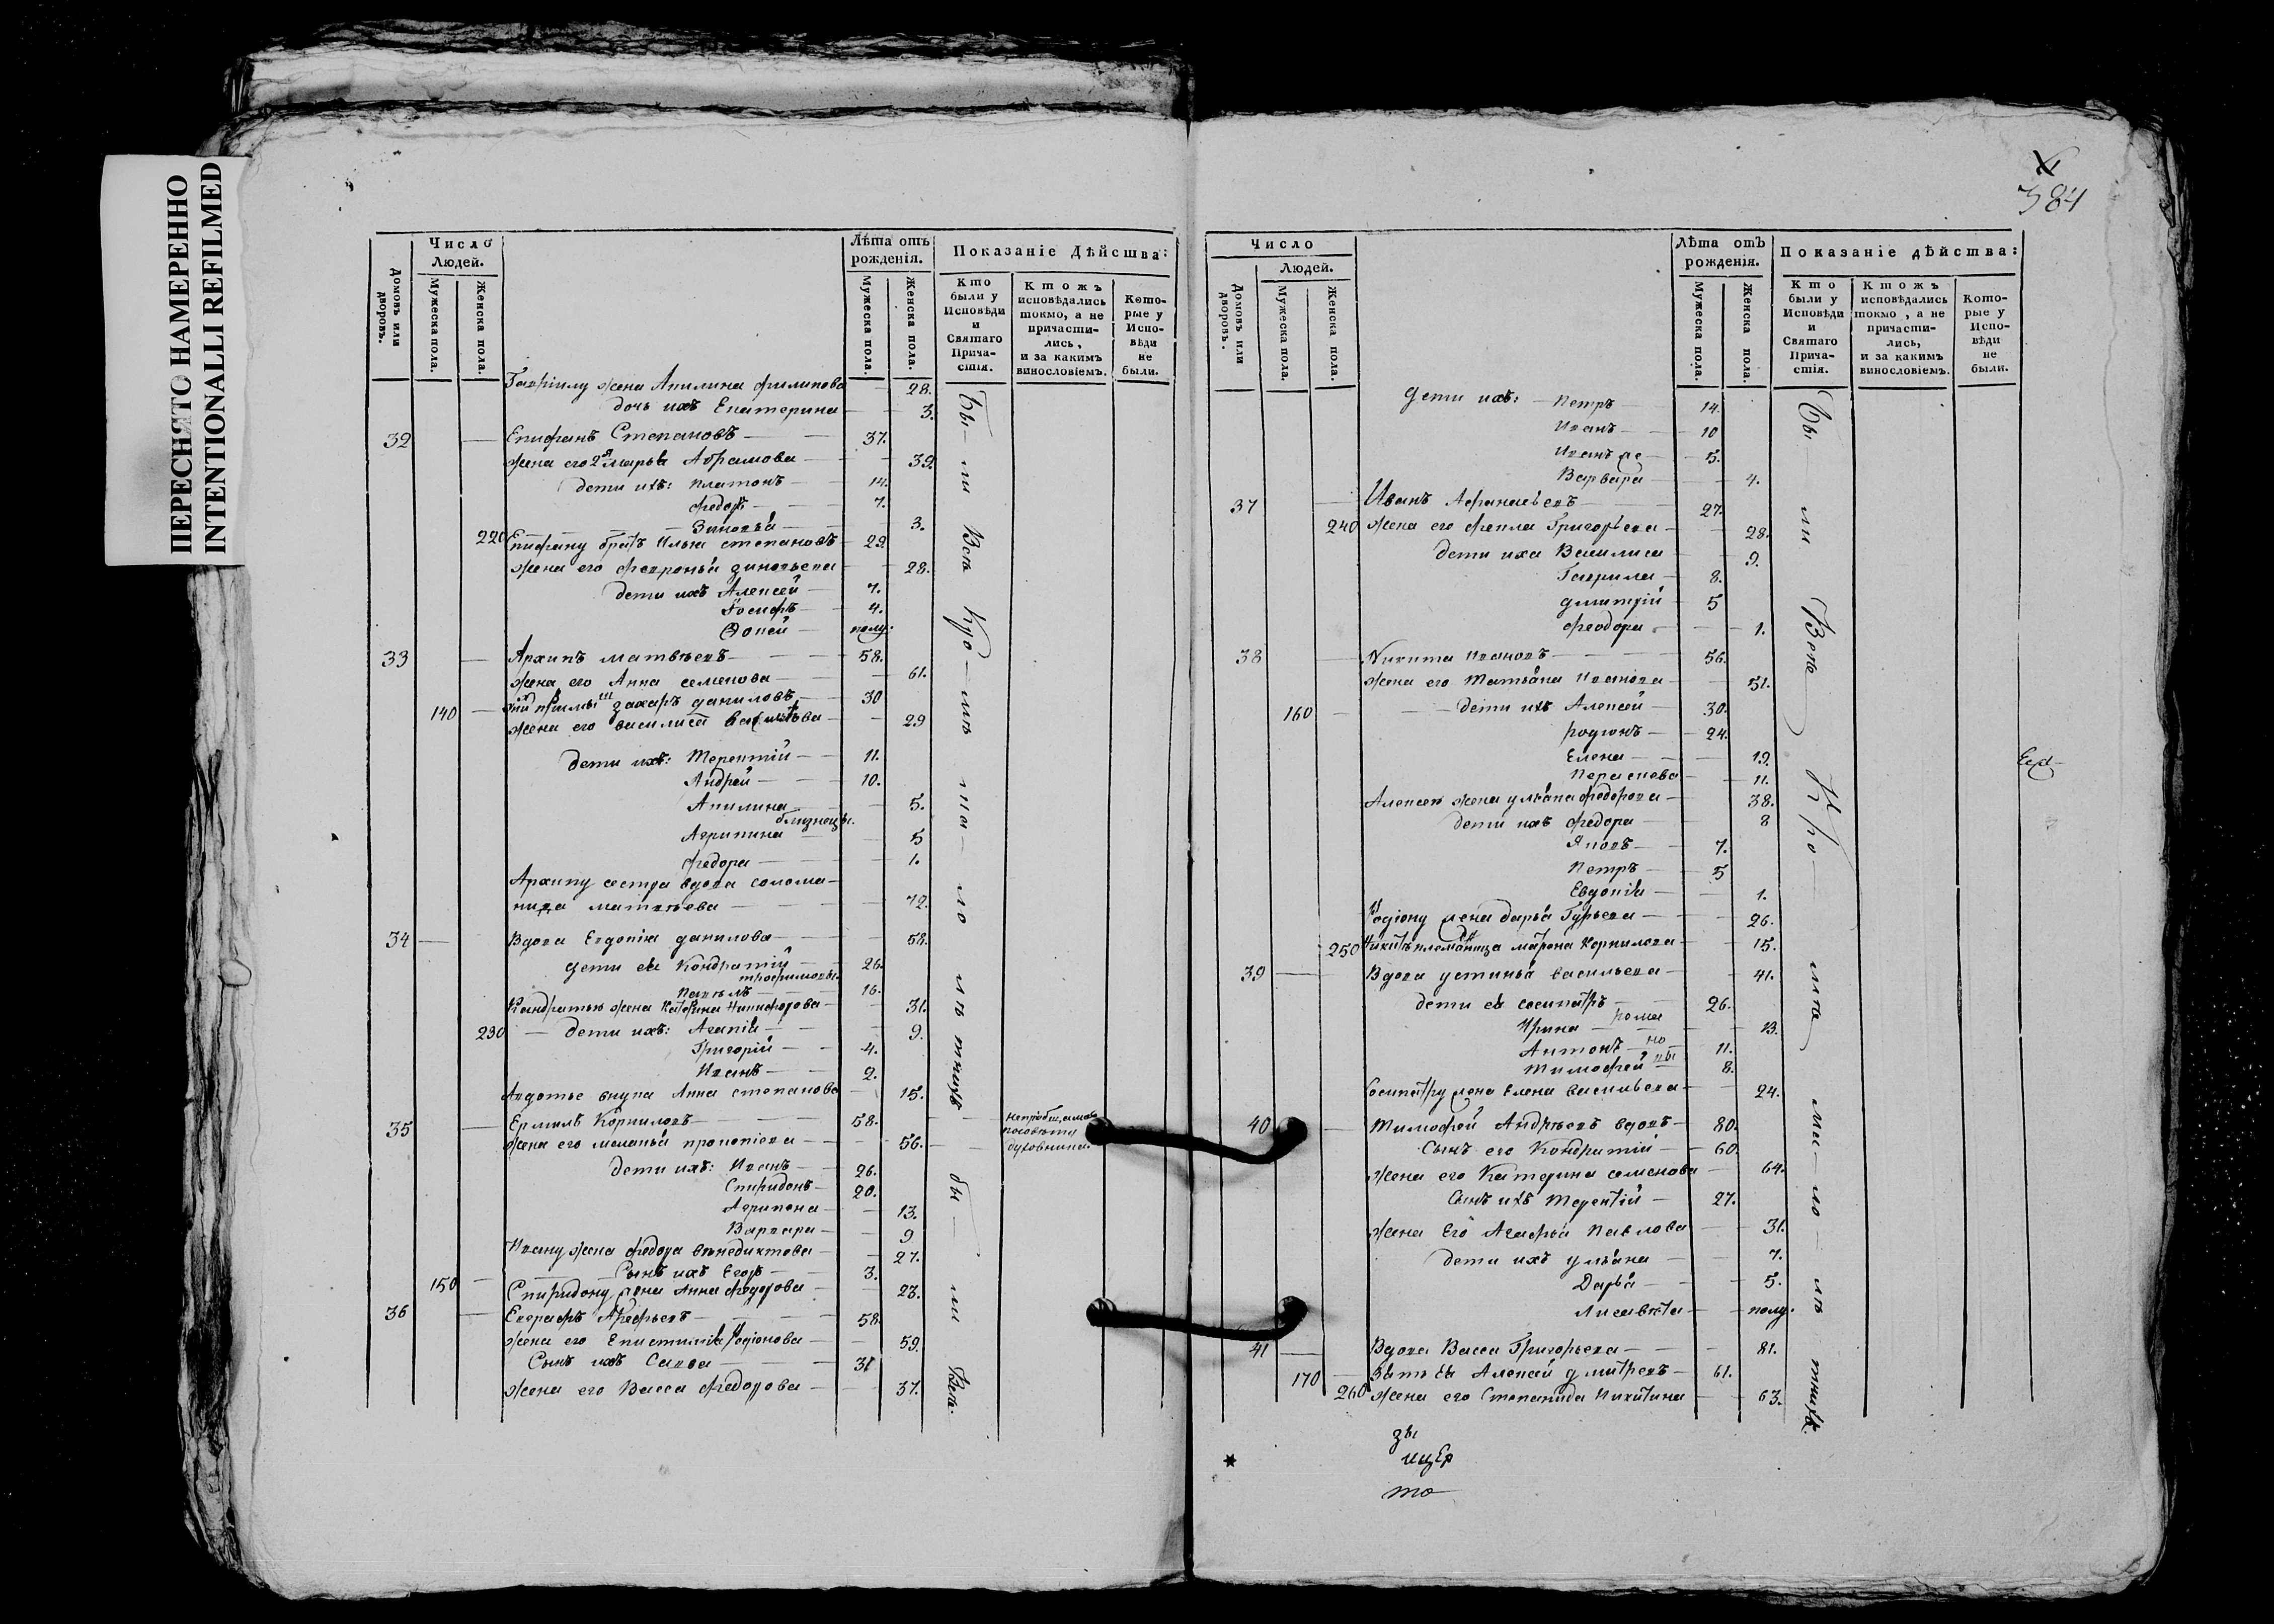 ПЕРЕСНЯТО НАМЕРЕННО
INTENTIONALLI REFILMED
Число
Людей.
Домовъ или дворовъ.
Мужеска пола.
Женска пола.
Лѣта отъ рожденія.
Мужеска пола.
Женска пола.
Показаніе Дѣйства:
Кто были у Исповѣди и Святаго Прича-стія.
Ктожъ исповѣдались токмо, а не причасти-лись, и за какимъ винословіемъ.
Кото-рые у Испо-вѣди не были.
Гавріилу жена Акилина филипова 28.
дочь ихъ Екатерина 3.
32 Епифанъ Степановъ 37.
жена его 2я марья Абрамова 39.
дети ихъ: платонъ 14.
федоръ 7.
Зиновья 3.
220 Епифану братъ Илья степановъ 29
жена его февронья зиновьева 28.
дети ихъ Алексей 7.
Іосифъ 4.
Фокей полу.
33 Архипъ матвѣевъ 58.
жена его Анна семенова 61.
140 захаръ даниловъ 30
жена его василиса 29
дети ихъ: Терентій 11.
Андрей 10.
Акилина 5.
близнецы.
Агрипина 5
федора 1.
Архипу сестра вдова солома-
нида матвѣева 72.
34 Вдова Евдокія данилова 58.
дети ея Кондратій 26.
трофимовы.
Павелъ 16.
Кандратью жена Катерина Никифорова 31.
230 дети ихъ: Агапія 9.
Григорій 4.
Иванъ 2.
Авдотье внука Анна степанова 15.
35 Ермилъ Корниловъ 58.
жена его меланья прокопіева 56.
духовника.
дети ихъ: Иванъ 26.
Спиридонъ 20.
Агрипена 13.
Варвара 9
Ивану жена федора венедиктова 27.
150 Сынъ ихъ Егоръ 3.
Спиридону жена Анна федорова 23.
36 Евграфъ Арефьевъ 58.
жена его Епистимія Родіонова 59.
Сынъ ихъ Савва 31
жена его Васса федорова 37.
Бы-ли Всѣ
бы-ли Всѣ.
384
Число
Людей.
Домовъ или дворовъ.
Мужеска пола.
Женска пола.
Лѣта отъ рожденія.
Мужеска пола.
Женска пола.
Показаніе дѣйства:
Кто были у Исповѣди и Святаго Прича-стія.
Ктожъ исповѣдались токмо, а не причасти-лись, и за какимъ винословіемъ.
Кото-рые у Испо-вѣди не были.
дети ихъ: Петръ 14.
Иванъ 10
Иванъ же 5.
Варвара 4.
37 Иванъ Афанасьевъ 27.
240 жена его фекла Григорьева 28.
дети иха Василиса 9.
Гаврила 8.
дмитрій 5
феодора 1.
38 Никита Ивановъ 56.
жена его Татьяна Иванова 51.
160 дети ихъ Алексей 30.
родіонъ 24.
Елена 19.
Параскева 11.
Алексея жена ульяна федорова 38.
дети ихъ федора 8
Яковъ 7.
Петръ 5
Евдокія 1.
Родіону жена дарья Гурьева 26.
250 Никитѣ племяница матрона Корнилова 15.
39 Вдова устинья васильева 41.
дети ея сосипатръ 26.
Ирина 13.
Антонъ 11.
Тимофей 8.
рома
но
вы
Сосипатру жена Елена васильева 24.
40 Тимофей Андрѣевъ вдовъ 80.
Сынъ его Кондратій 60.
жена его Катерина семенова 64.
Сынъ ихъ Терентій 27.
жена Его Агафья Павлова 31.
дети ихъ ульяна 7.
Дарья 5.
Лисавѣта полу.
41 Вдова Васса Григорьева 81.
170 Зять Ея Алексей дмитревъ 61.
260 жена его Степанида Никитина 63.
Бы-ли Всѣ